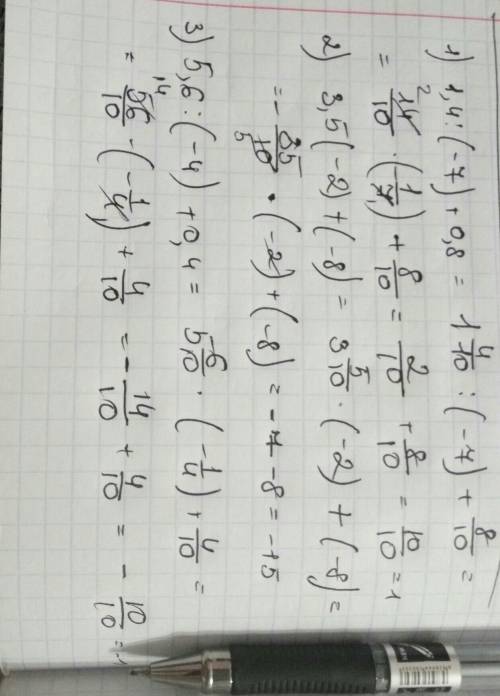 1) 1,4:(-7)+0,8 = 1 4/10 : (-7) + 8/10 =
= 14/10 · (1/7) + 8/10 = 2/10 + 8/10 = 10/10 = 1
2) 3,5(-2)+(-8) = 3 5/10 · (-2) + (-8) =
= - 35/10 · (-2) + (-8) = -7 -8 = -15
3) 5,6:(-4)+0,4 = 5 6/10 · (-1/4) + 4/10 =
= 56/10 · (-1/4) + 4/10 = - 14/10 + 4/10 = - 10/10 = -1